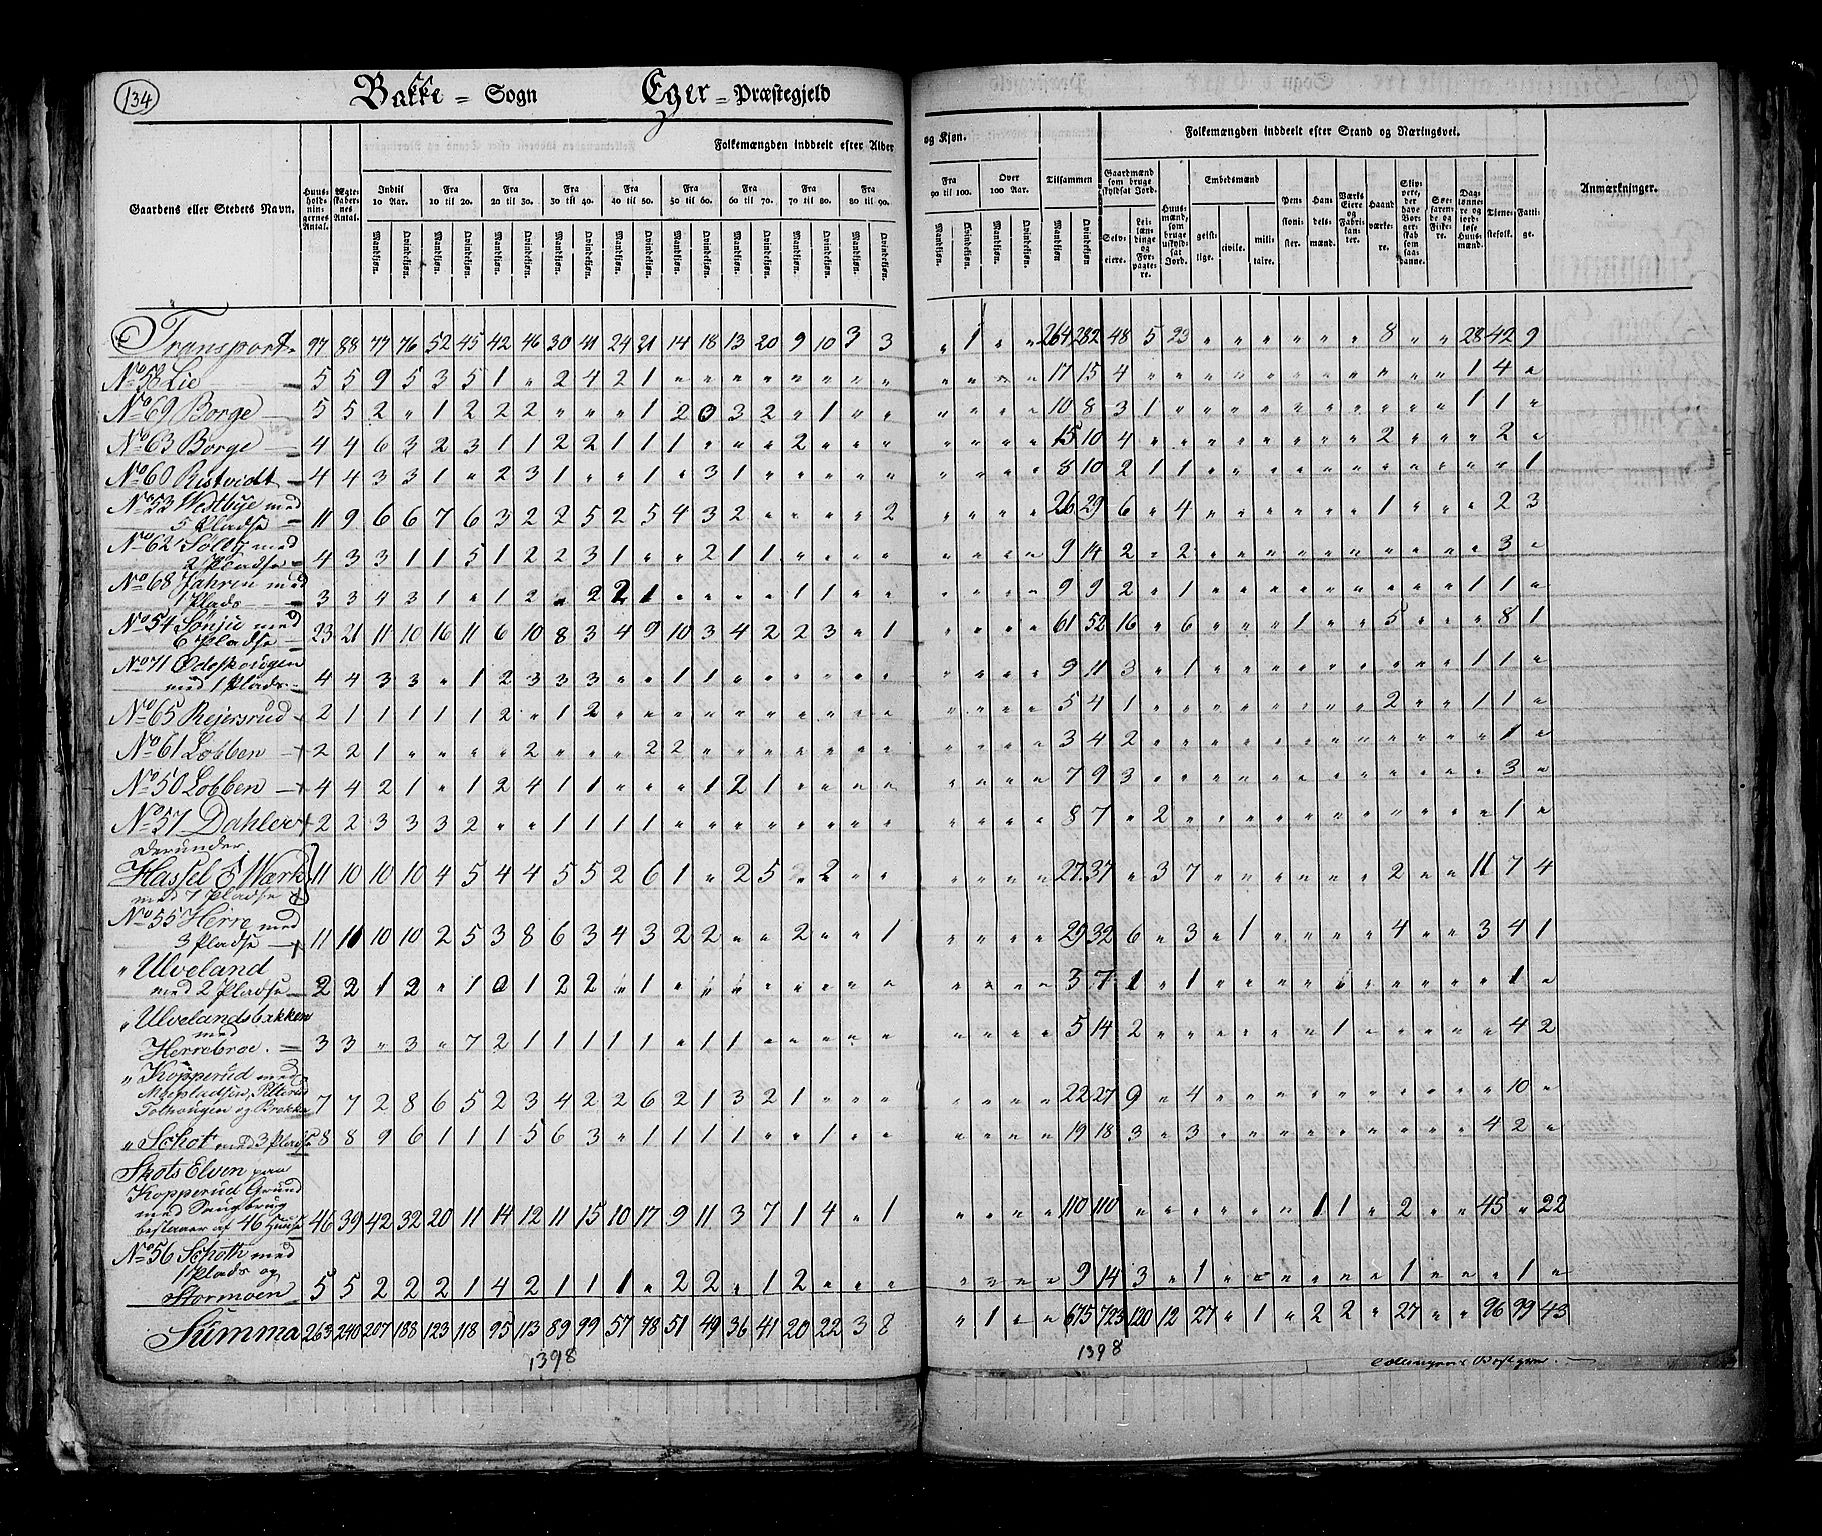 134
Bakke = Sogn Eger = Præstegjeld
Folkemængden inddeelt efter Alder og Kjøn.
Folkemængden inddeelt efter Stand og Næringsvei.
Gaardens eller Stedets Navn.
Huusholdningernes Antal.
Ægteskabernes Antal.
Indtil 10 Aar. Fra 10 til 20. Fra 20 til 30. Fra 30 til 40. Fra 40 til 50. Fra 50 til 60. Fra 60 til 70. Fra 70 til 80. Fra 80 til 90.
Fra 90 til 100. Over 100 Aar. Tilsammen
Mandkjøn. Qvindekjøn.
Gaardmænd som bruge skyldsat Jord.
Selveiere. Leilændinge og Forpagtere.
Huusmænd, som bruge uskyldsat Jord.
Embedsmænd
geistlige. civile. militaire.
Pensionister.
Handelsmænd.
Værks Eiere og Fabrikanter.
Haandværkere.
Skippere, der have Borgerskab som saadanne.
Søefarende og Fiskere.
Daglønnere og jordløse Huusmænd.
Tjenestefolk.
Fattige.
Anmærkninger.
Transport 97 88 77 76 52 45 42 46 30 41 24 21 14 18 13 20 9 10 3 3 " 1 " " 264 282 48 5 23 " " " " " " 8 " " 28 42 9
No 58 Lie 5 5 9 5 3 5 1 " 2 4 2 1 " " " " " " " " " " " " 17 15 4 " " " " " " " " " " " 1 4 "
No 69 Borge 5 5 2 " 1 2 2 2 " " " 1 2 0 3 2 " 1 " " " " " " 10 8 3 1 " " " " " " " " " " 1 1 "
No 63 Borge 4 4 6 3 2 3 1 1 2 2 1 1 1 " " " 2 " " " " " " " 15 10 4 " " " " " " " " 2 " " " 2 "
No 60 Ristvedt 4 4 3 3 1 " 2 3 1 " " 1 " 3 1 " " " " " " " " " 8 10 2 1 1 " " " " " " " " " " " 1
No 53 Westbye med
5 Pladse 11 9 6 6 7 6 3 2 2 5 2 5 4 3 2 " " " " 2 " " " " 26 29 6 " 4 " " " " " " 1 " " " 2 3
No 62 Sølby med
2 Pladse 4 3 3 1 1 5 1 2 2 3 1 " " 2 1 1 " " " " " " " " 9 14 2 " 2 " " " " " " " " " " 3 "
No 68 Jahren med
1 Plads 3 3 4 3 1 " 1 2 " 2 2 1 " " " " 1 1 " " " " " " 9 9 2 " 1 " " " " " " " " " 1 1 "
No 54 Sonju med
6 Pladse 23 21 11 10 16 11 6 10 8 3 4 9 10 3 4 2 2 3 " 1 " " " " 61 52 16 " 6 " " " 1 " " 5 " " " 8 1
No 71 Ødeskougen
med 1 Plads 4 4 3 3 " 1 2 3 3 3 " " 1 1 " " " " " " " " " " 9 11 3 " 1 " " " " " " " " " 1 1 "
No 65 Rejersrud 2 1 1 1 1 1 2 " 1 2 " " " " " " " " " " " " " " 5 4 1 " " " " " " " " 2 " " 1 1 "
No 61 Lobben 2 2 1 " " " " 2 " " " 2 2 " " " " " " " " " " " 3 4 2 " " " " " " " " " " " " 1 "
No 50 Lobben 4 4 2 1 " 1 2 4 1 1 " " " 1 2 1 " " " " " " " " 7 9 3 " " " " " " " " " " " " 3 "
No 57 Dahler 2 2 3 3 3 2 " " 1 1 1 1 " " " " " " " " " " " " 8 7 " 2 " " " " " " " " " " " 1 "
derunder
Hassel J Wærk
med 7 Pladse 11 10 10 10 4 5 4 4 5 5 2 6 1 " 2 5 " 2 " " " " " " 27 37 " 3 7 " " " " " " 2 " " 11 7 4
No 55 Herre med
3 Pladse 11 11 10 10 2 5 3 8 6 3 4 3 2 2 " " 2 " " 1 " " " " 29 32 6 " 3 " 1 " " " " 4 " " 3 4 1
" Ulveland
med 2 Pladse 2 2 1 2 " 1 0 1 2 2 " 1 " " " " " " " " " " " " 3 7 1 " 1 " " " " " " " " " " 1 "
" Ulvelandsbakken
med
Herrebroe. 3 3 " 3 " 7 2 1 1 1 1 " 1 1 " " " " " " " " " 5 14 2 " " " " " " " 1 " " " " 4 2
" Kopperud med
Moepladsen, Pitterud
Tolhougen og Brekke 7 7 2 8 6 5 2 3 4 2 2 6 2 1 3 2 1 " " " " " " " 22 27 9 " 4 " " " " " " " " " " 10 "
" Schot med 3 Pladse 8 8 9 6 1 1 1 5 6 3 " 1 1 1 1 " " 1 " " " " " " 19 18 3 " 3 " " " " " " " " " 4 2 "
Skots Elven paa
Kopperud Grund
med Saugbrug
bestaaer af 46 Huuse 46 39 42 32 20 11 14 12 11 15 10 17 9 11 3 7 1 4 " 1 " " " " 110 110 " " " " " " " 1 1 " 2 " " 45 " 22
No 56 Schoth med
1 Plads og
Stormoen 5 5 2 2 2 1 4 2 1 1 1 " 2 2 " 1 2 " " " " " " " 9 14 3 " 1 " " " " " " 1 " " " 1 "
Summa 263 240 207 188 123 118 95 113 89 99 57 78 51 49 36 41 20 22 3 8 " 1 " " 675 723 120 12 27 " 1 " 2 2 " 27 " " 96 99 43
1398 1398